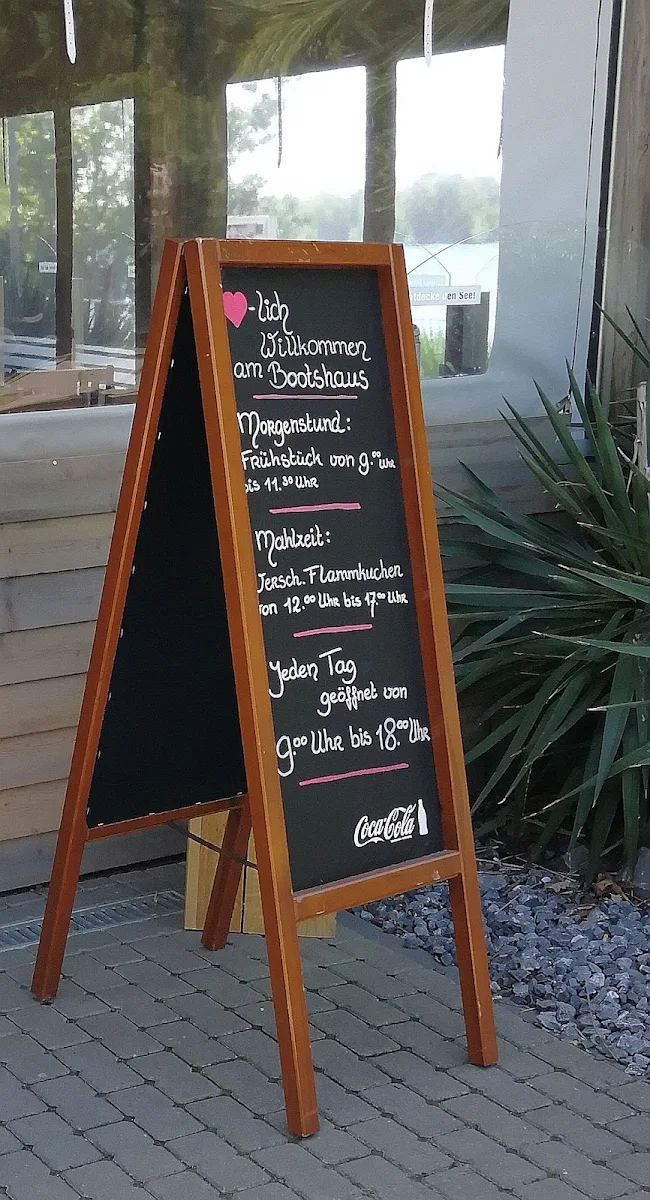 ♥-lich
Willkommen
am Bootshaus
Morgenstund:
Frühstück von 9.⁰⁰ Uhr
bis 11.³⁰ Uhr
Mahlzeit:
Versch. Flammkuchen
von 12.⁰⁰ Uhr bis 17⁰⁰ Uhr
Jeden Tag
geöffnet von
9.⁰⁰ Uhr bis 18.⁰⁰ Uhr
Coca-Cola
ntdecke den See!